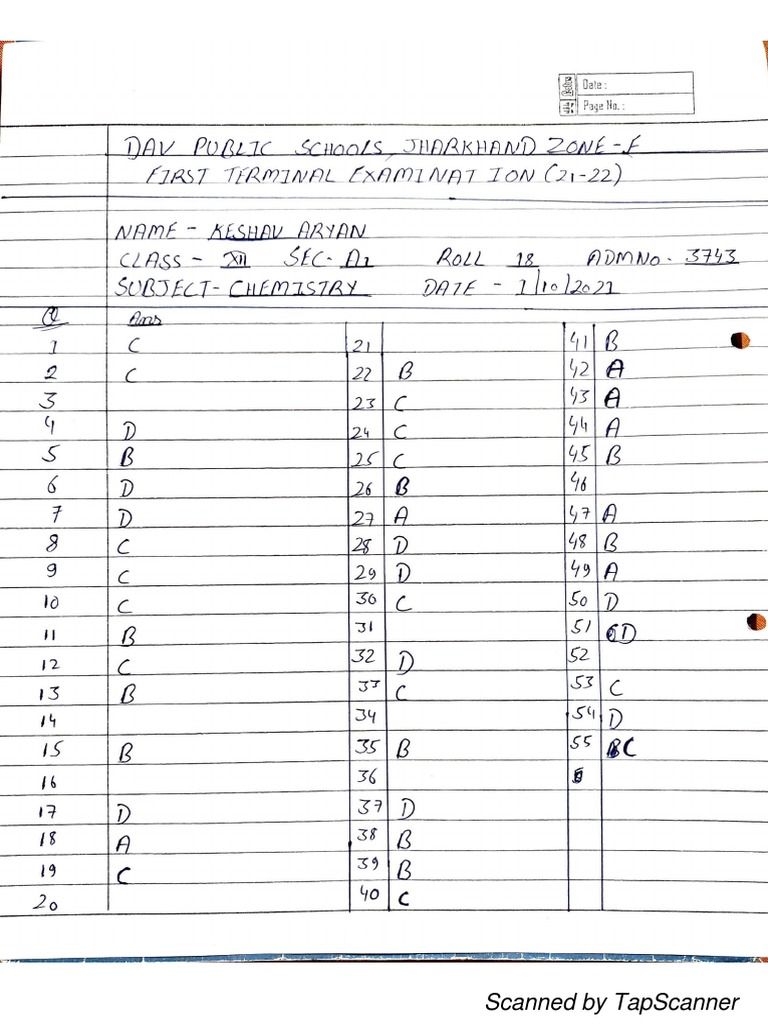 Date :
Page No. :
DAV PUBLIC SCHOOLS, JHARKHAND ZONE-F
FIRST TERMINAL EXAMINATION (21-22)
NAME - KESHAV ARYAN
CLASS - XII SEC- A1 ROLL 18 ADMNO. 3743
SUBJECT- CHEMISTRY DATE - 1/10/2021
Q Ans
1 C 21 41 B
2 C 22 B 42 A
3 23 C 43 A
4 D 24 C 44 A
5 B 25 C 45 B
6 D 26 B 46
7 D 27 A 47 A
8 C 28 D 48 B
9 C 29 D 49 A
10 C 30 C 50 D
11 B 31 51 D
12 C 32 D 52
13 B 33 C 53 C
14 34 54 D
15 B 35 B 55 C
16 36
17 D 37 D
18 A 38 B
19 C 39 B
20 40 C
Scanned by TapScanner